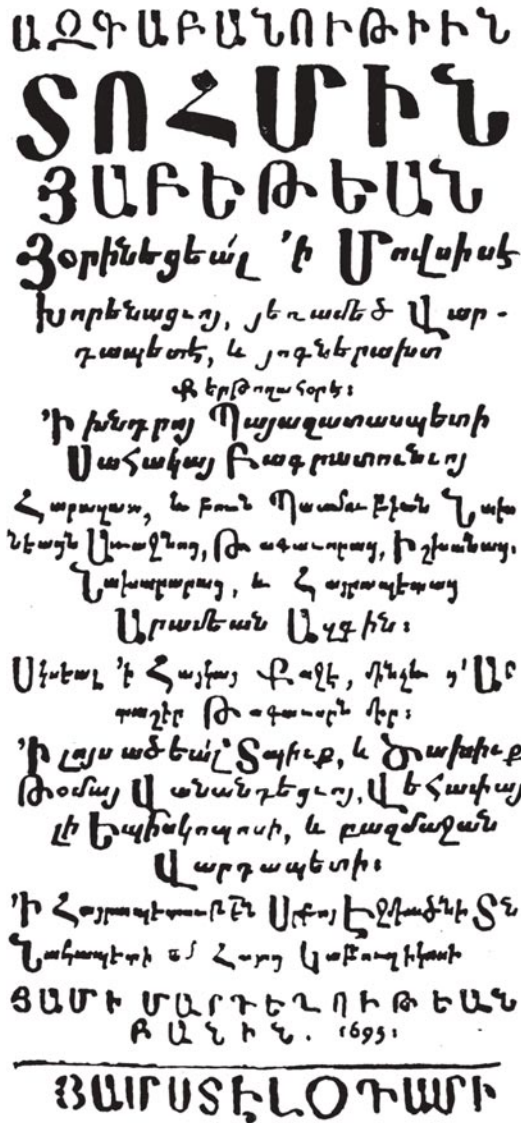 ԱԶԳԱԲԱՆՈՒԹԻՒՆ
ՏՈՀՄԻՆ
ՅԱԲԵԹԵԱՆ
Յօրինեցեա՛լ ՚ի Մովսիսէ
Խորենացւոյ, յեռամեծ Վար-
դապետէ, և յոգներախտ
Քերթողահօրէ։
՚Ի խնդրոյ Պայազատասպետի
Սահակայ Բագրատունւոյ
Հարազատ, և բուն Պատմութիւն Նախ
նեացն Առաջնոց, Թագաւորաց, Իշխանաց.
Նախարարաց, և Հայրապետաց
Արամեան Ազգին։
Սկսեալ ՚ի Հայկայ Քաջէ, մինչև ց՚Ար
տաշէր Թագաւորն մեր։
՚Ի լոյս ածեա՛լ Տպիւք, և Ծախիւք
Թօմայ Վանանդեցւոյ, Վեհափայ
լի Եպիսկոպոսի, և բազմաջան
Վարդապետի։
՚Ի Հայրապետութեն Սրբոյ Էջմածնի Տն
Նահապետի Հայոց Կաթուղիկոսի
ՅԱՄԻ ՄԱՐԴԵՂՈՒԹԵԱՆ
ԲԱՆԻՆ. 1695։
ՅԱՄՍՏԷԼՕԴԱՄԻ